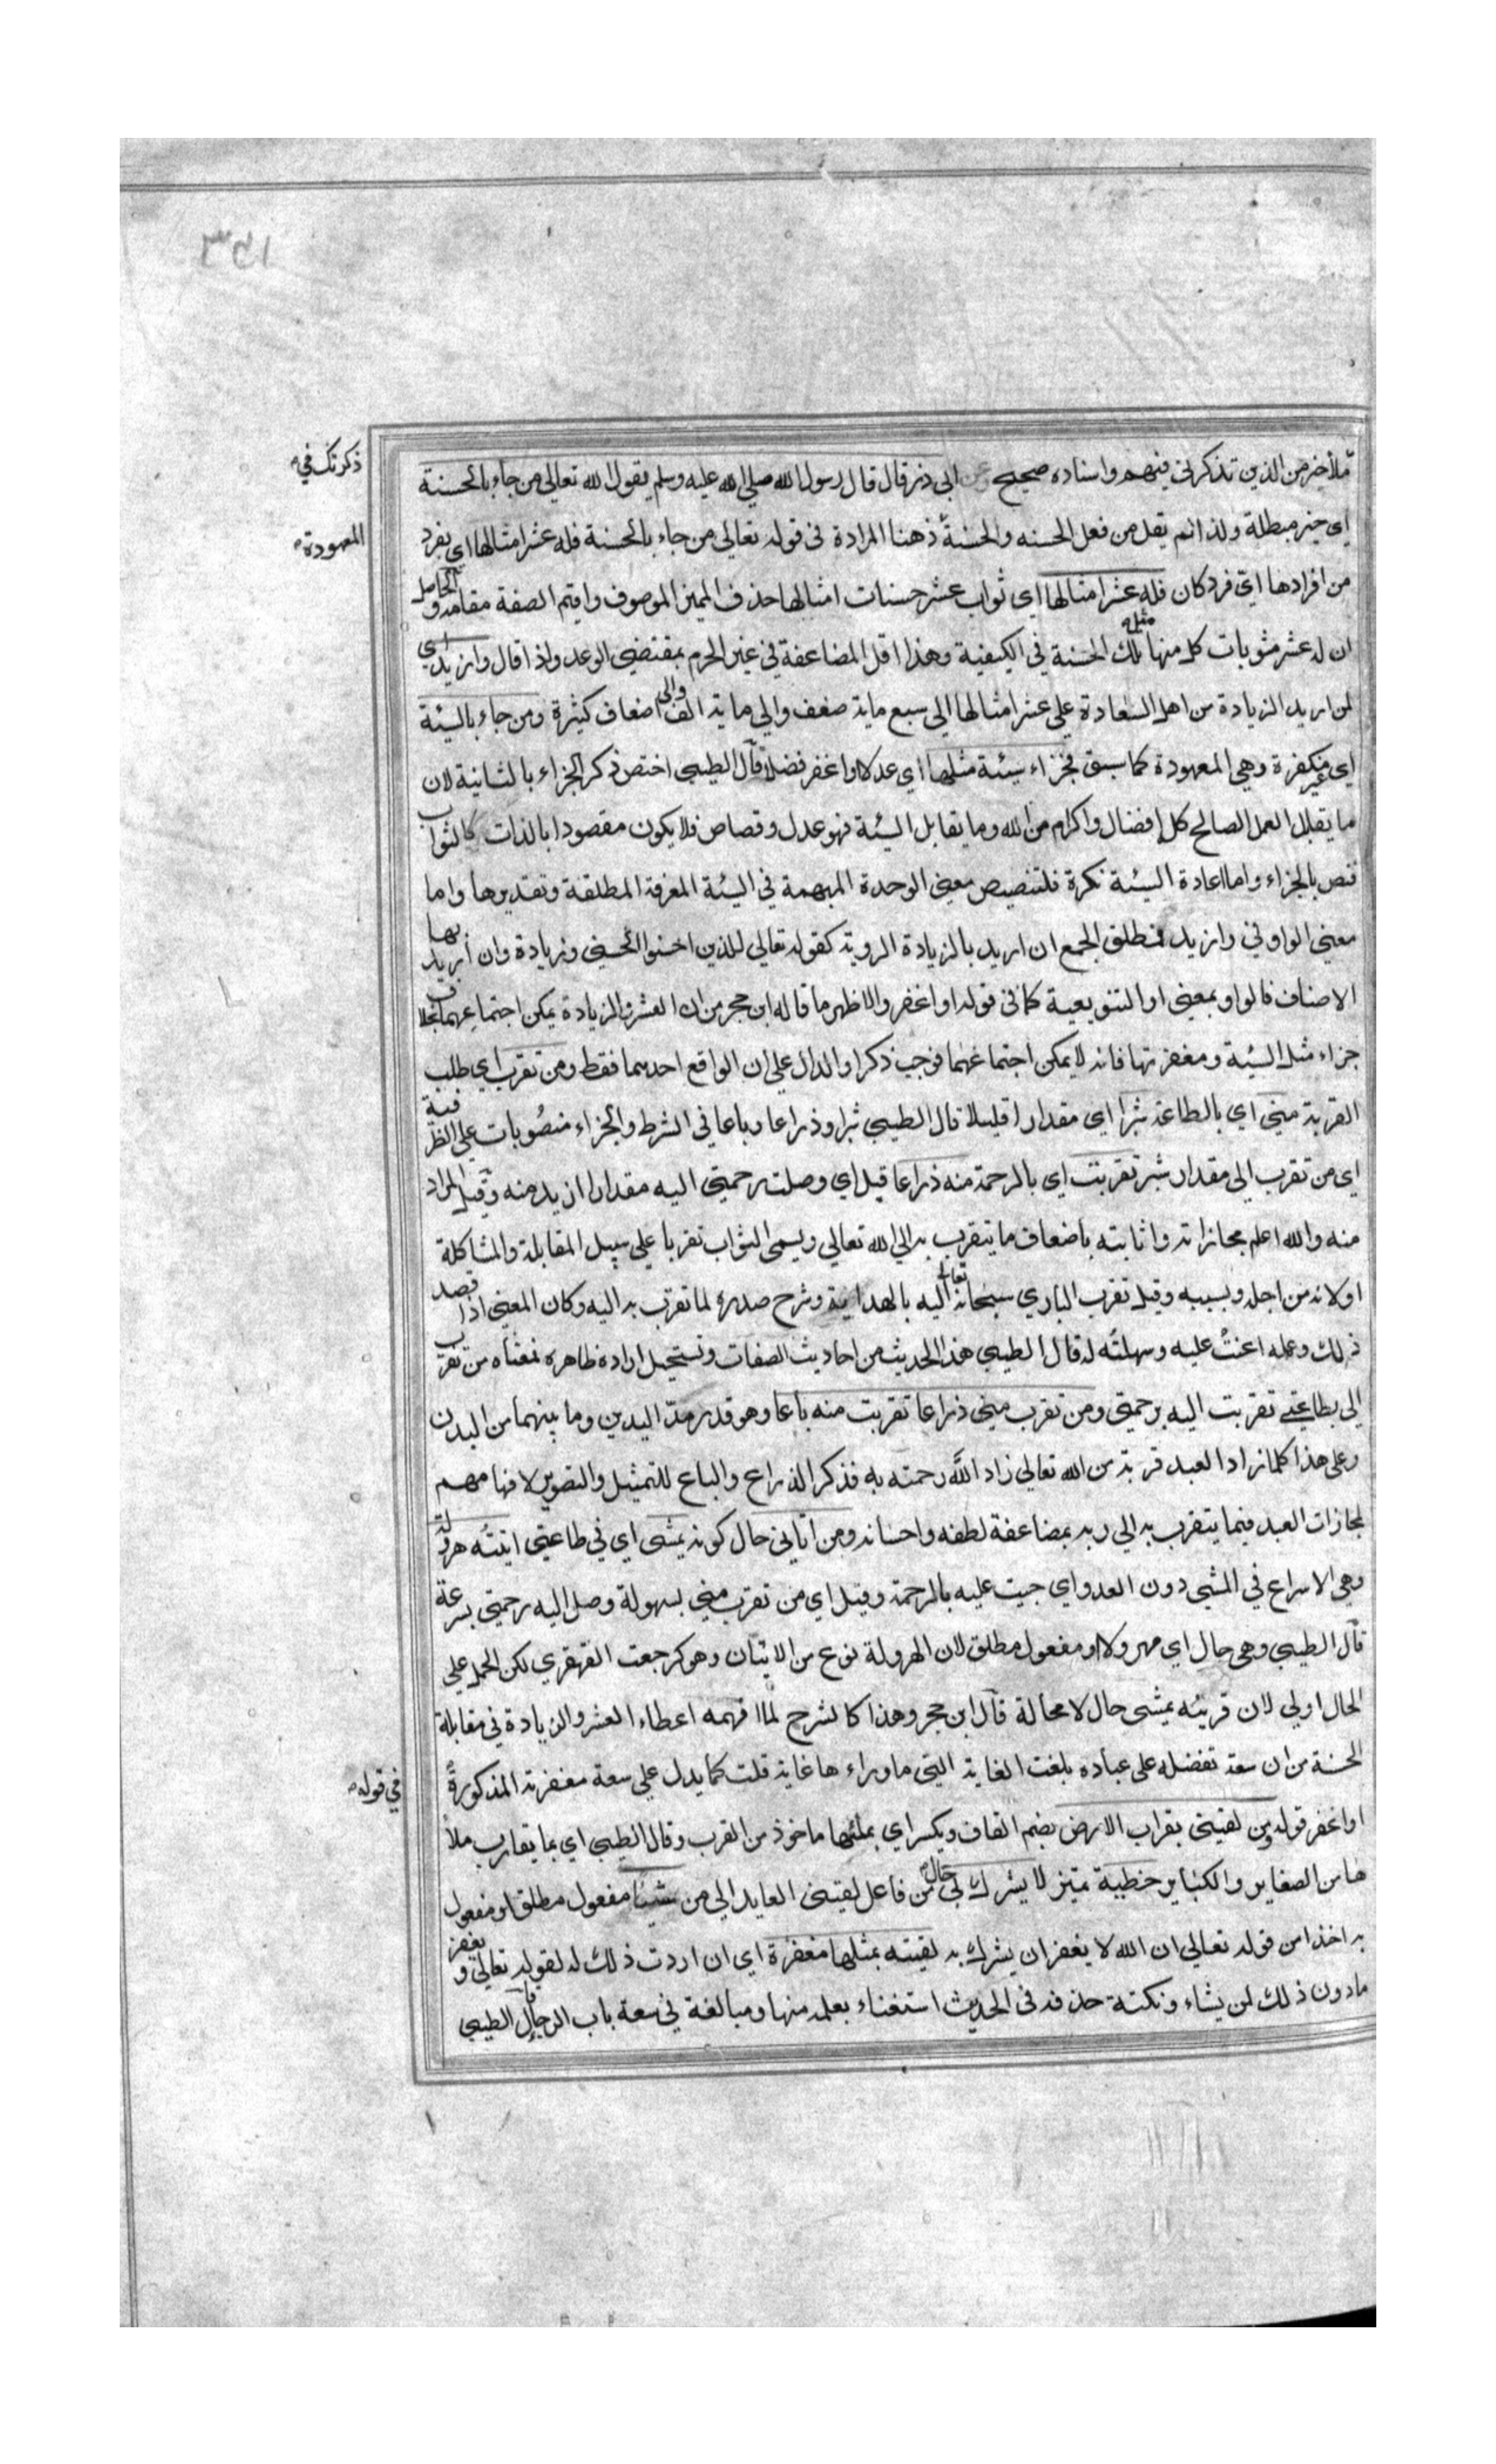 ١٥٣
ملأ خير من الذين تذكرني فيهم واسناده صحيح عن ابي ذر قال قال رسول الله صلي الله عليه وسلم يقول الله تعالي من جاء بالحسنة
ذكرتك في
اي غير مبطلة ولذا لم يقل من فعل الحسنه والحسنة هنا المرادة في قوله تعالي من جاء بالحسنة فله عشر امثالها اي بفرد
المعهودة
من افرادها اي فرد كان فله عشر امثالها اي ثواب عشر حسنات امثالها حذف المميز الموصوف واقيم الصفة مقامه والحاصل
ان له عشر مثوبات كل منها مثل تلك الحسنة في الكيفية وهذا اقل المضاعفة في غير الحرم بمقتضي الوعد واذا قال وازيد اي
لمن اريد الزيادة من اهل السعادة علي عشر امثالها الي سبع ماية ضعف والي ماية الف والي اضعاف كثيرة ومن جاء بالسيئة
اي غير مكفرة وهي المعهودة كما سبق فجزاء سيئة مثلها اي عدلا او اغفر فضلا قال الطيبي اختص ذكر الجزاء بالثانية لان
ما يقابل العمل الصالح كله افضال واكرام من الله وما يقابل السيئة فهو عدل وقصاص فلا يكون مقصودا بالذات كالثواب
فنص بالجزاء واما اعادة السيئة نكرة فلتنصيص معني الوحدة المبهمة في السيئة المعرفة المطلقة وتقديرها واما
معني الواو في وازيد فمطلق الجمع ان اريد بالزيادة الروية كقوله تعالي للذين احسنوا الحسني وزيادة وان اريد بها
الاضعاف فالواو بمعني او التنويعية كما في قوله او اغفر والاظهر ما قاله ابن حجر من ان العشر والزيادة يمكن اجتماعهما بخلاف
جزاء مثل السيئة ومغفرتها فانه لا يمكن اجتماعهما فوجب ذكر او الدال علي ان الواقع احدهما فقط ومن تقرب اي طلب
القربة مني اي بالطاعة شبرا اي مقدارا قليلا قال الطيبي شبرا وذراعا وباعا في الشرط والجزاء منصوبات علي الظرفية
اي من تقرب الي مقدار شبر تقربت اي بالرحمة منه ذراعا قيل اي وصلت رحمتي اليه مقدارا ازيد منه وقيل المراد
منه والله اعلم مجازاته واثابته باضعاف ما يتقرب به الي الله تعالي ويسمي الثواب تقربا علي سبيل المقابلة والمشاكلة
او لانه من اجله وبسببه وقيل تقرب الباري سبحانه تعالي اليه بالهداية وشرح صدره لما تقرب به اليه وكان المعني اذا قصد
ذلك وعمله اعنت عليه وسهلته له قال الطيبي هذا الحديث من احاديث الصفات ويستحيل ارادة ظاهره فمعناه من تقرب
الي بطاعتي تقربت اليه برحمتي ومن تقرب مني ذراعا تقربت منه باعا وهو قدر مد اليدين وما بينهما من البدن
وعلي هذا كلما زاد العبد قربة من الله تعالي زاد الله رحمته به فذكر الذراع والباع للتمثيل والتصوير لافهامهم
لمجازات العبد فيما يتقرب به الي ربه بمضاعفة لطفه واحسانه ومن اتاني حال كونه يمشي اي في طاعتي اتيته هرولة
وهي الاسراع في المشي دون العدو اي جيت عليه بالرحمة وقيل اي من تقرب مني بسهولة وصل اليه رحمتي بسرعة
قال الطيبي وهي حال اي مهرولا او مفعول مطلق لان الهرولة نوع من الاتيان وهو كرجعت القهقري لكن الحمل علي
الحال اولي لان قرينه يمشي حال لا محالة قال ابن حجر وهذا كالشرح لما افهمه اعطاء العشر والزيادة في مقابلة
الحسنة من ان سعة تفضله علي عباده بلغت الغاية التي ما وراءها غاية قلت كما يدل علي سعة مغفرته المذكورة
في قوله
او اغفر قوله ومن لقيني بقراب الارض بضم القاف ويكسر اي بملئها ماخوذ من القرب وقال الطيبي اي بما يقارب ملأ
ها من الصغاير والكباير خطية تميز لا يشرك بي حال من فاعل لقيني العايد الي من شيئا مفعول مطلق او مفعول
به اخذا من قوله تعالي ان الله لا يغفر ان يشرك به لقيته بمثلها مغفرة اي ان اردت ذلك له لقوله تعالي ويغفر
ما دون ذلك لمن يشاء ونكتة حذفه في الحديث استغناء بعلمه منها ومبالغة في سعة باب الرجا قال الطيبي